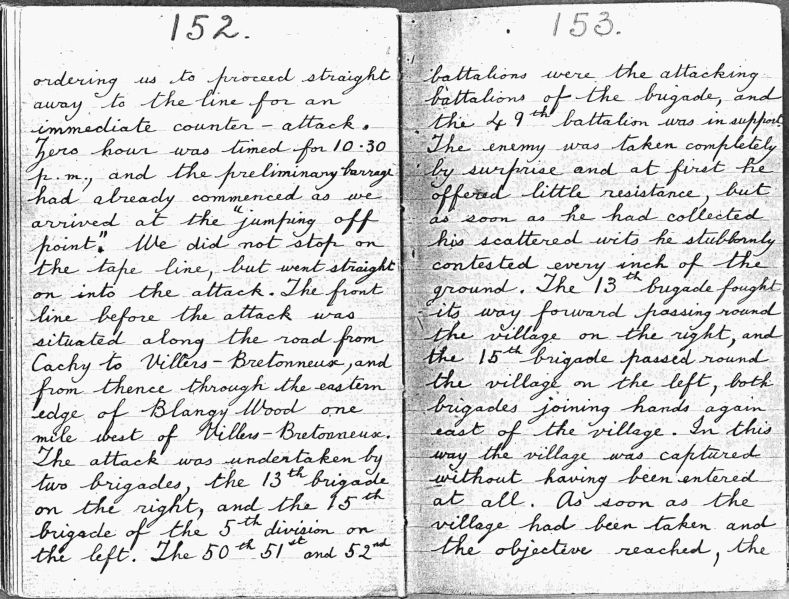 152.
ordering us to proceed straight
away to the line for an
immediate counter-attack.
Zero hour was timed for 10.30
p.m., and the preliminary barrage
had already commenced as we
arrived at the "jumping off
point". We did not stop on
the tape line, but went straight
on into the attack. The front
line before the attack was
situated along the road from
Cachy to Villers-Bretonneux, and
from thence through the eastern
edge of Blangy Wood one
mile west of Villers-Bretonneux.
The attack was undertaken by
two brigades, the 13th brigade
on the right, and the 15th
brigade of the 5th division on
the left. The 50th 51st and 52nd
153.
battalions were the attacking
battalions of the brigade, and
the 49th battalion was in support.
The enemy was taken completely
by surprise and at first he
offered little resistance, but
as soon as he had collected
his scattered wits he stubbornly
contested every inch of the
ground. The 13th brigade fought
its way forward passing round
the village on the right, and
the 15th brigade passed round
the village on the left, both
brigades joining hands again
east of the village. In this
way the village was captured
without having been entered
at all. As soon as the
village had been taken and
the objective reached, the